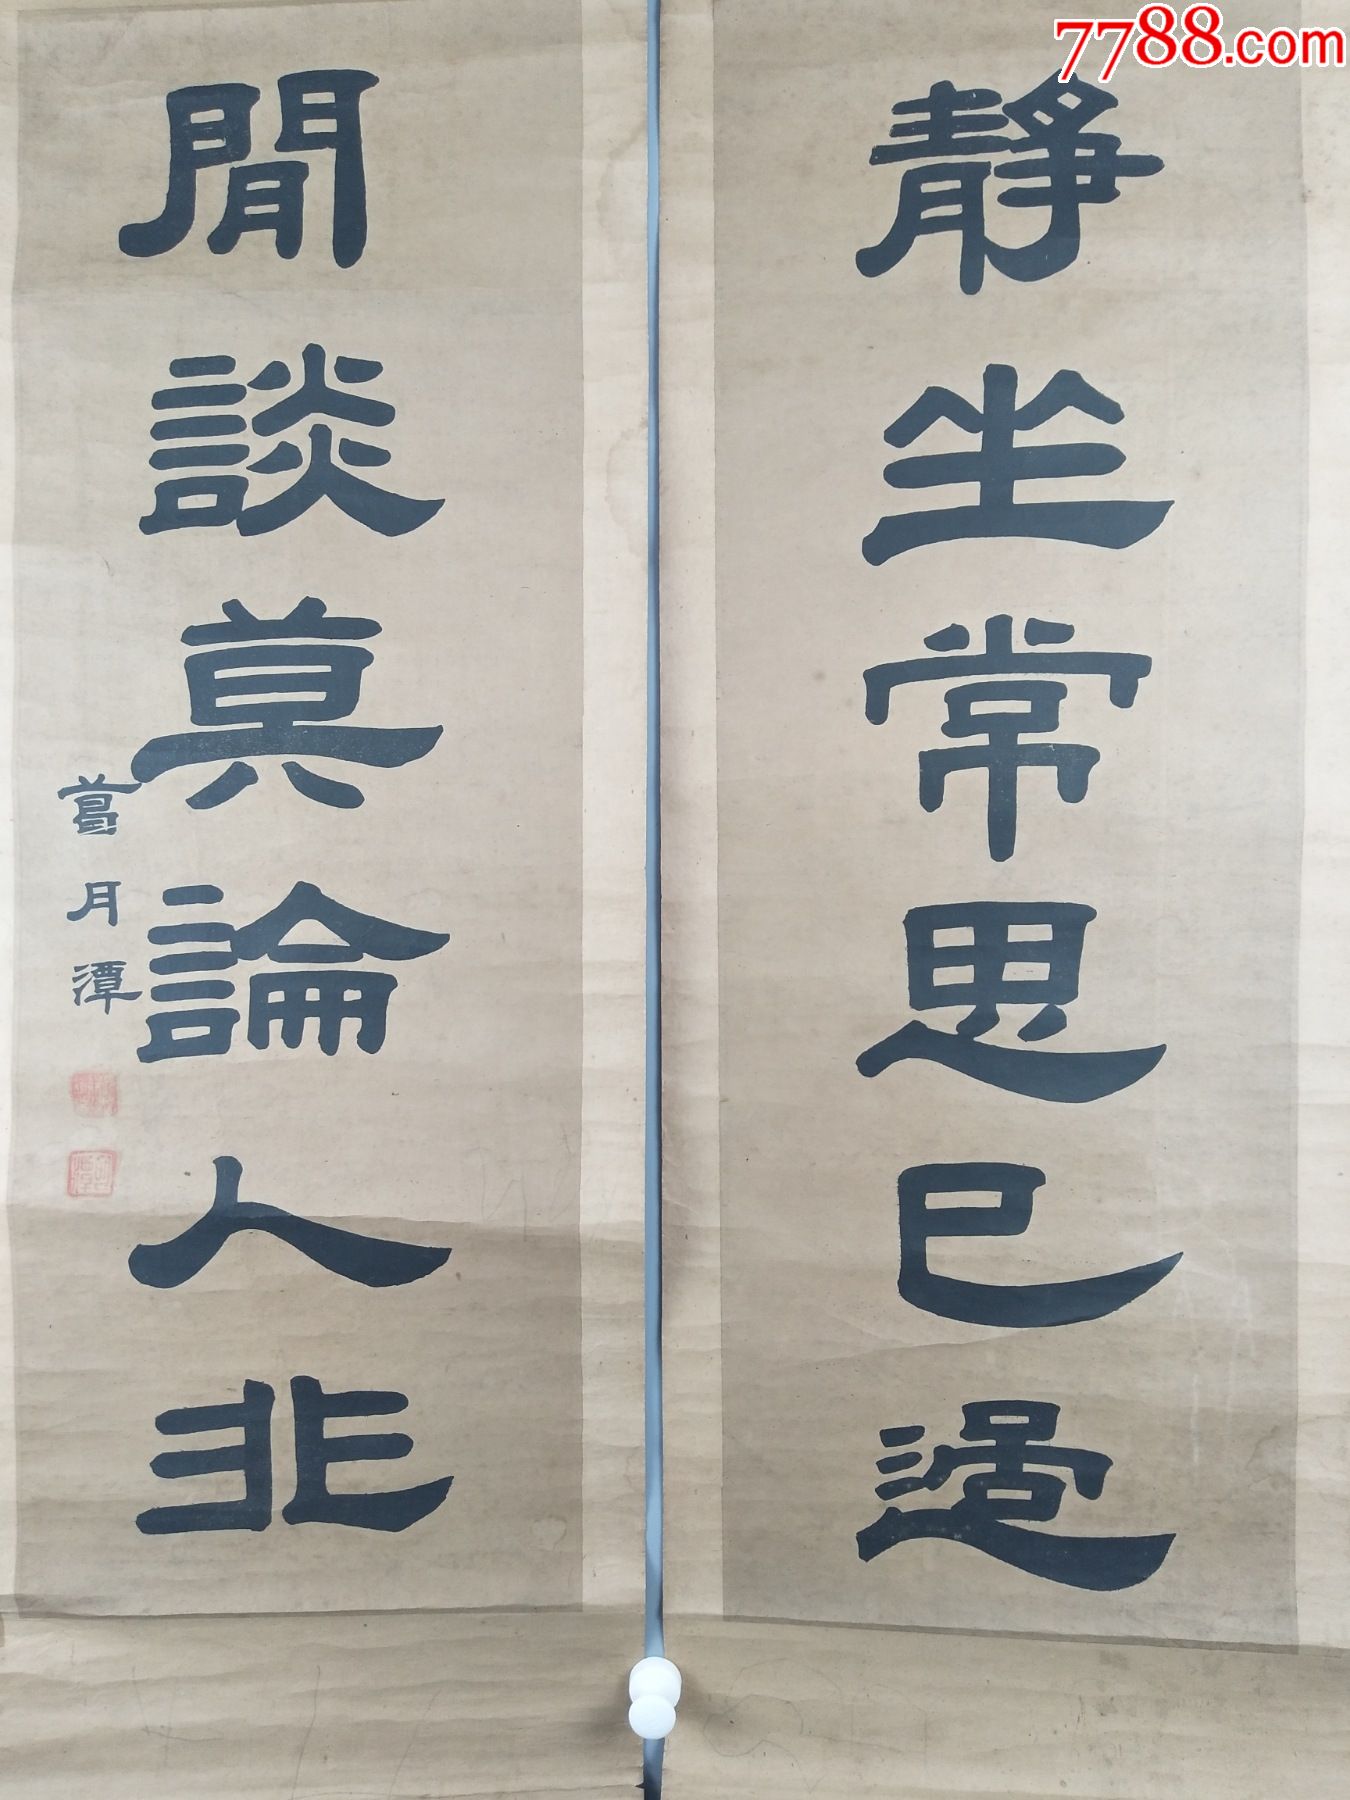 7788.com
靜坐常思已過
閒談莫論人非
葛月潭